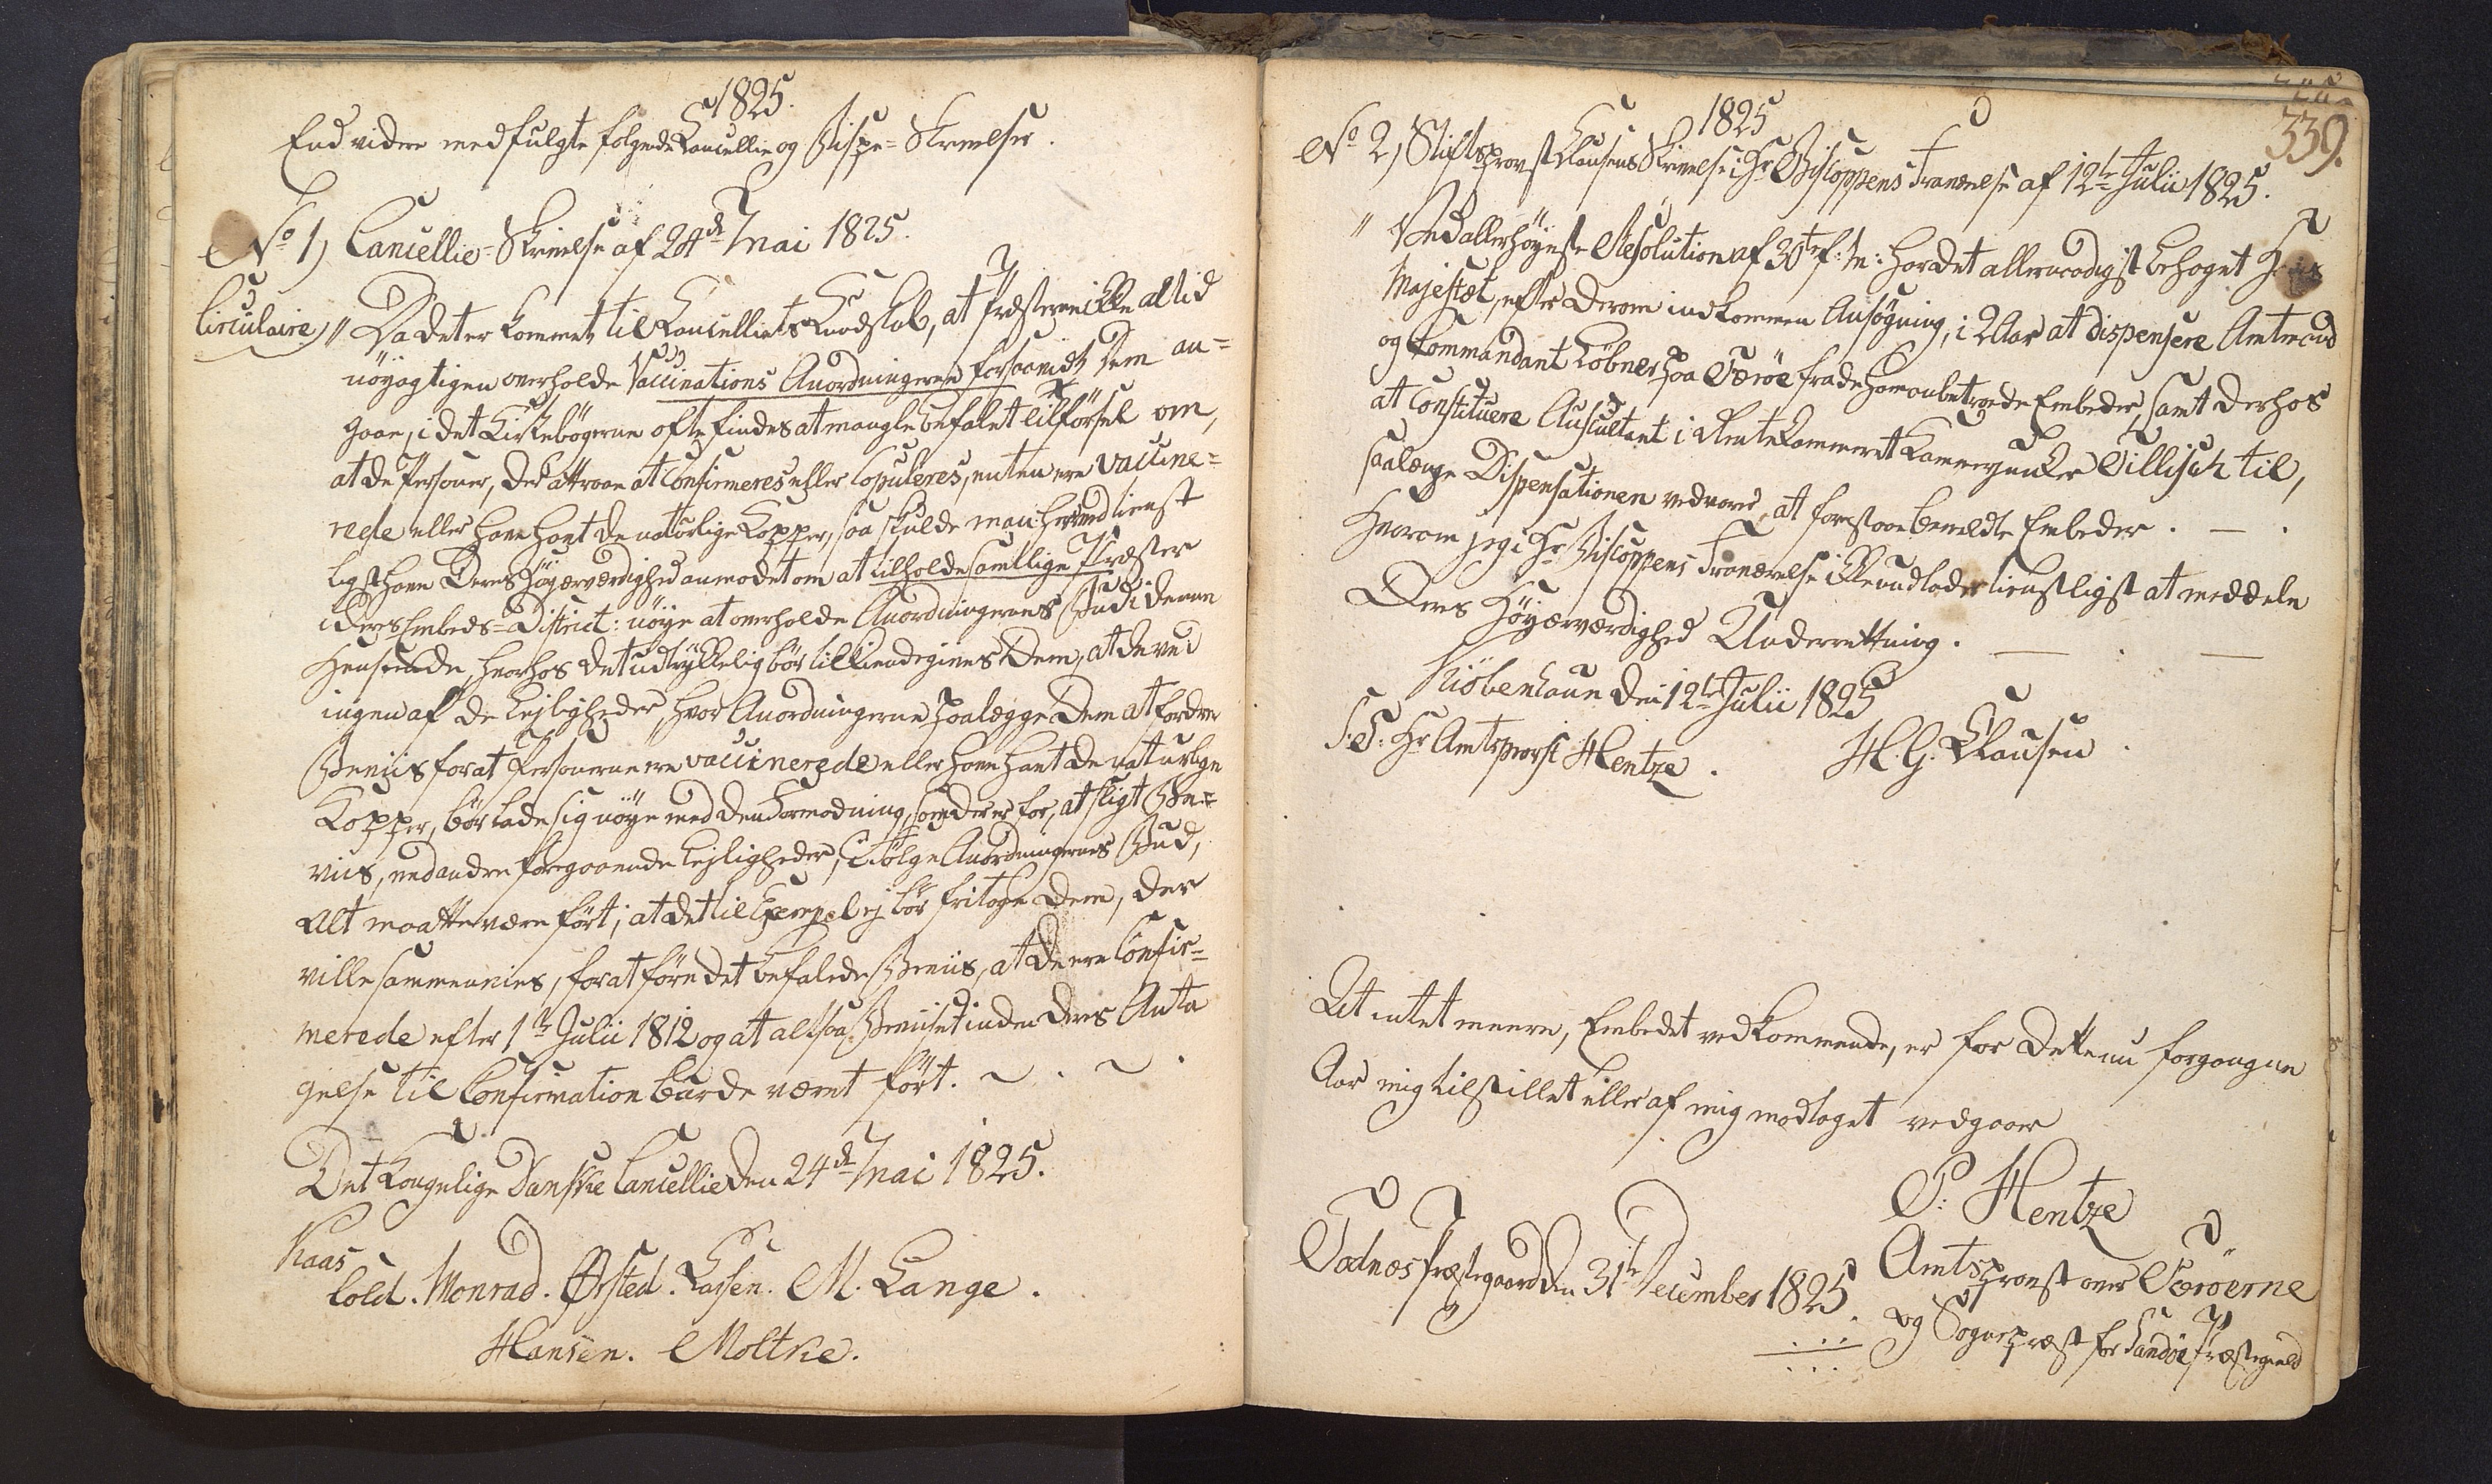 1825.
End videre medfulgte følgende Cancellie og Bispe-Skrivelser.
No 1) Cancellie-Skrivelse af 24de Mai 1825.
Circulaire) "Da det er kommet til Cancelliets Kundskab, at Præsterne ikke altid
nöyagtigen overholde Vaccinations Anordningerne forsaavidt dem an=
gaae, i det Kirkebögerne ofte findes at mangle befalet Tilförsel om,
at de Personer, der attraae at Confirmeres eller Copuleres, enten ere vaccine=
rede eller have havt de naturlige Kopper, saa skulde man herved tienst
ligst have Deres Höyærværdighed anmodet om at tilholde samtlige Præster
i Deres Embeds-District: nöye at overholde Anordningernes Bud i denne
Henseende, hvorhos det udtrykkelig bör tilkiendegives Dem, at de ved
ingen af de Lejligheder, hvor Anordningerne paalægge Dem at fordre
Beviis for at Personerne ere vaccinerede eller have havt de naturlige
Kopper, bör lade sig nöye med den Formodning, som der er for, at sligt Be=
viis, ved andre foregaaende Lejligheder, i Fölge Anordningernes Bud,
alt maatte være fört; at det til Exempel ej bör fritage Dem, der
ville sammenvies, for at före det befalede Beviis, at de ere Confir=
merede efter 1te Julii 1812 og at altsaa Beviset inden deres Anta
gelse til Confirmation burde været fört.
Det Kongelige Danske Cancellie den 24de Mai 1825.
Kaas
Cold. Monrad. Ørsted. Lassen. M. Lange.
Hansen. Moltke.
339.
1825
No 2) Stiftsprovst Clausens Skrivelse i Hr Biscoppens Fraværelse af 12te Julii 1825.
" Ved allerhöyeste Resolution af 30te f: M: har det allernaadigst behaget Hans
Majestæt, efter derom indkommen Ansögning, i 2 Aar at dispensere Amtmand
og Commandant Löbner paa Færöe fra de ham anbetroede Embeder, samt derhos
at Constituere Auscultant i Rentekammeret Kammerjunker Tillisch til,
saalænge Dispensationen vedvarer, at forestaae bemeldte Embeder.
Hvorom jeg i Hr Biscoppens Fraværelse ikke undlader tienstligst at meddele
Deres Höyærværdighed Underretning.
Kiöbenhavn den 12te Julii 1825
H. G. Clausen.
S. T. Hr Amtsprovst Hentze.
At intet meere, Embedet vedkommende, er for dette nu forgangne
Aar mig tilstillet eller af mig modtaget vedgaaer
P: Hentze
Amtsprovst over Færöerne
og Sognepræst for Sandöe Præstegield
Todnæs Præstegaard den 31te December 1825.